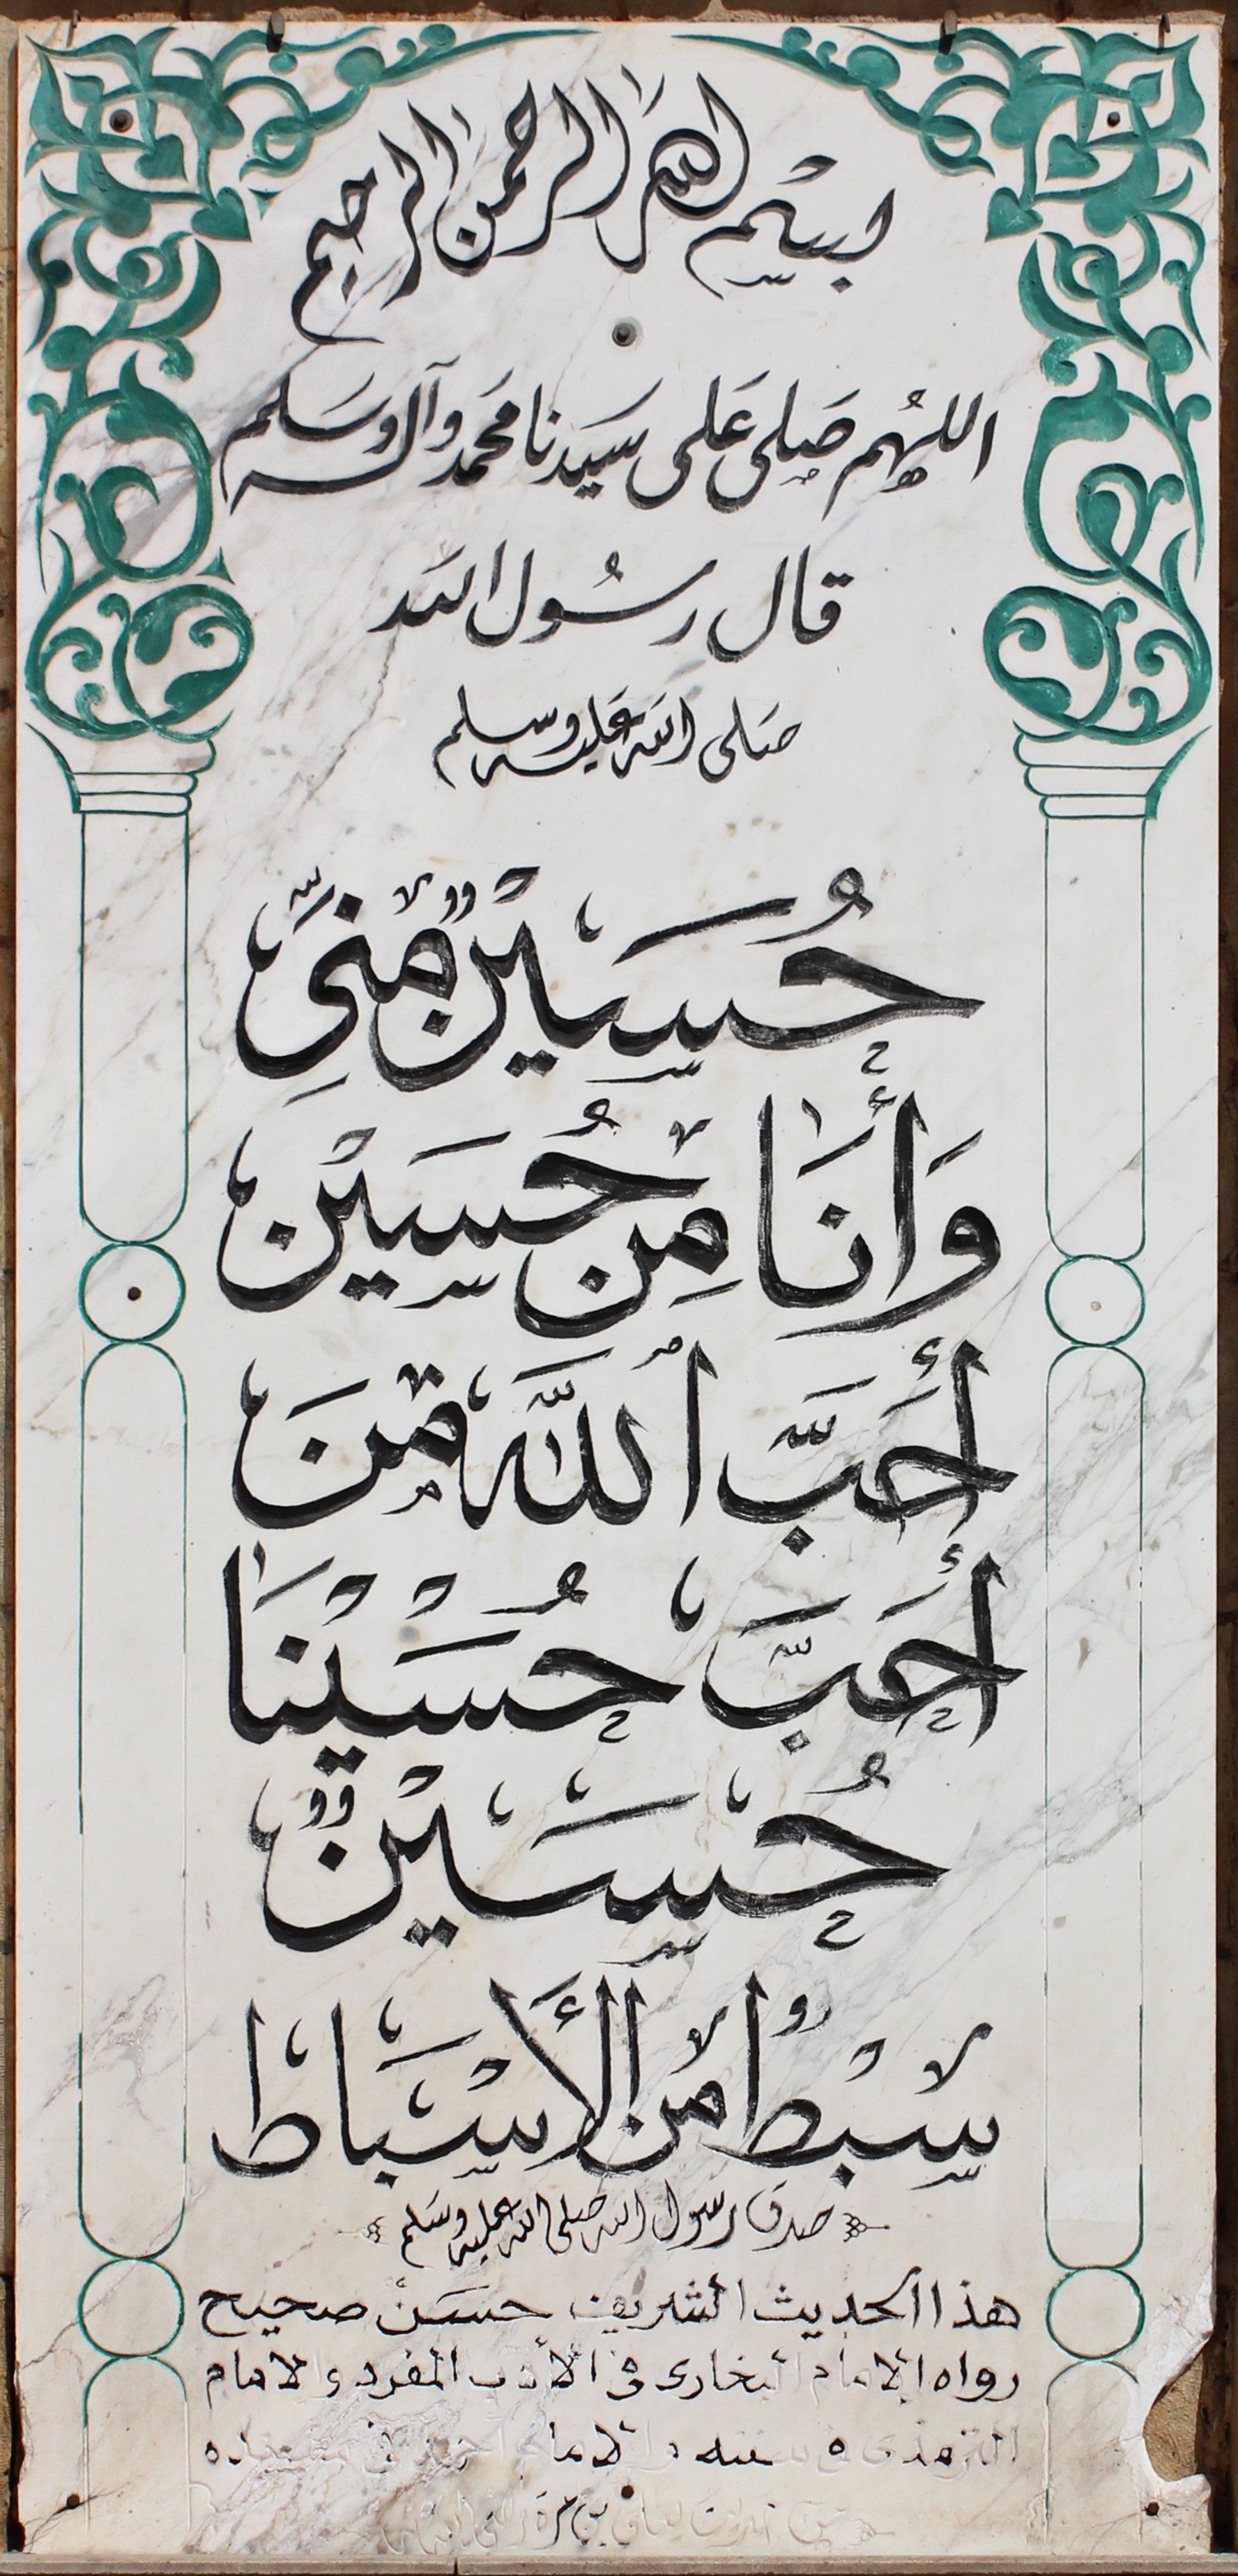 بسم الله الرحمن الرحيم
اللهم صلى على سيدنا محمد وآله وسلم
قال رسول الله
صلى الله عليه وسلم
حُسَيْنٌ مِنِّي
وَأَنَا مِن حُسَيْن
أَحَبَّ ٱللَّهُ مَنَ
أَحَبَّ حُسَيْنَا
حُسَيْنٌ
سِبْطٌ مِن الأَسْبَاط
صدق رسول الله صلى الله عليه وسلم
هذا الحديث الشريف حسن صحيح
رواه الإمام البخارى فى الأدب المفرد والامام
الترمذى فى سننه والامام احمد فى مسنده